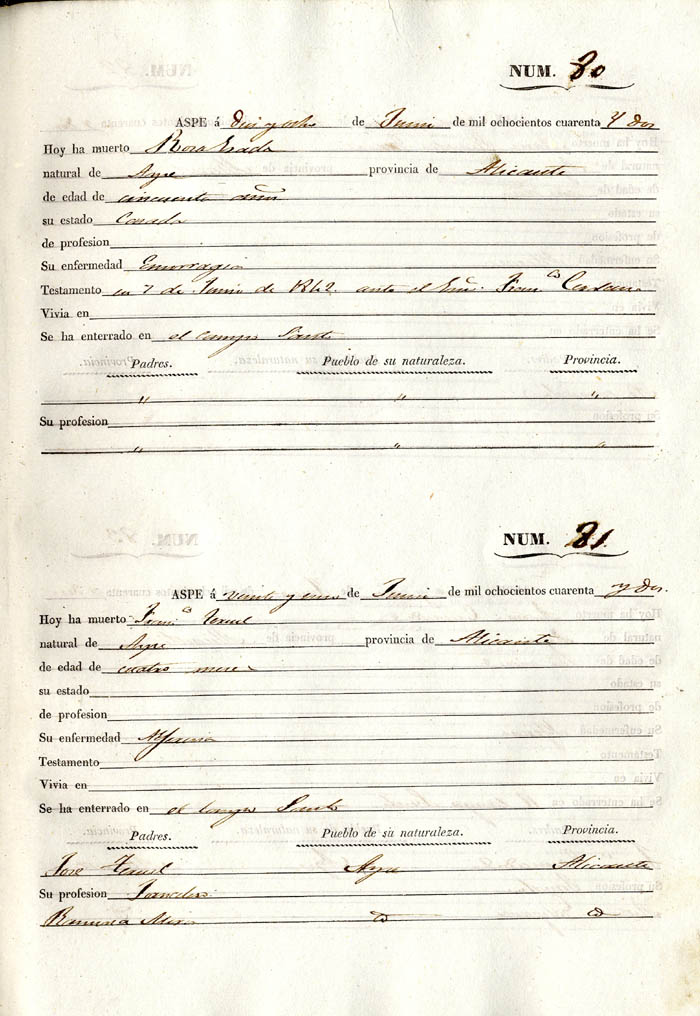 NUM. 80
ASPE á diez y ocho de Junio de mil ochocientos cuarenta y dos
Hoy ha muerto Rosa
natural de Aspe provincia de Alicante
de edad de cincuenta años
su estado Casada
de profesion
Su enfermedad Emorragia
Testamento en 7 de Junio de 1842. ante el Fran.co
Vivia en
Se ha enterrado en el campo Santo
Padres. Pueblo de su naturaleza. Provincia.
" " "
Su profesion
" " "
NUM. 81.
ASPE á veinte y uno de Junio de mil ochocientos cuarenta y dos.
Hoy ha muerto Fran.ca Teruel
natural de Aspe provincia de Alicante
de edad de cuatro meses
su estado
de profesion
Su enfermedad
Testamento
Vivia en
Se ha enterrado en el campo Santo
Padres. Pueblo de su naturaleza. Provincia.
Jose Teruel Aspe Alicante
Su profesion Jornalero
Ramona